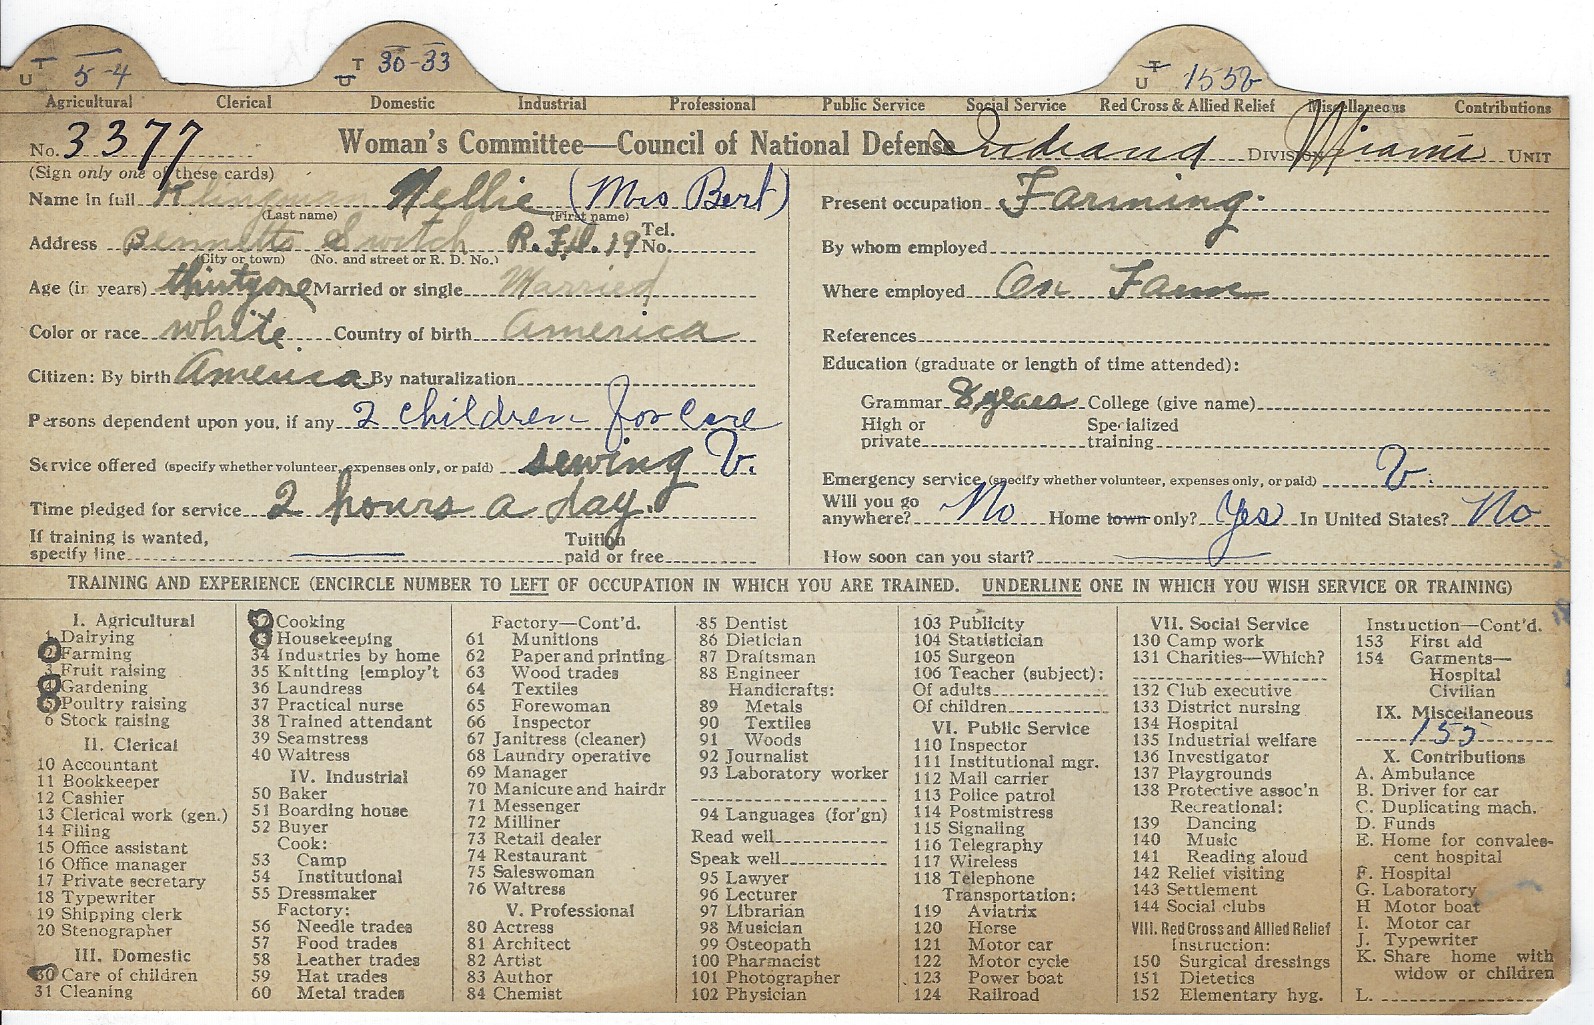 U T 5-4
U T 30-33
U T 155b
Agricultural Clerical Domestic Industrial Professional Public Service Social Service Red Cross & Allied Relief Miscellaneous Contributions
No. 3377 Woman's Committee—Council of National Defense Indiana DIVISION Miami UNIT
(Sign only one of these cards)
Name in full Nellie (Mrs Bert)
(Last name) (First name)
Address Bennetts Switch R.F.D. 19 Tel. No.
(City or town) (No. and street or R. D. No.)
Age (in years) thirtyone Married or single Married
Color or race white Country of birth America
Citizen: By birth America By naturalization
Persons dependent upon you, if any 2 children for care
Service offered (specify whether volunteer, expenses only, or paid) sewing V.
Time pledged for service 2 hours a day.
If training is wanted,
specify line Tuition paid or free
Present occupation Farming.
By whom employed
Where employed On Farm
References
Education (graduate or length of time attended):
Grammar 8 years College (give name)
High or private Specialized training
Emergency service (specify whether volunteer, expenses only, or paid) V.
Will you go anywhere? No Home town only? Yes In United States? No
How soon can you start?
TRAINING AND EXPERIENCE (ENCIRCLE NUMBER TO LEFT OF OCCUPATION IN WHICH YOU ARE TRAINED. UNDERLINE ONE IN WHICH YOU WISH SERVICE OR TRAINING)
I. Agricultural
1 Dairying
2 Farming
3 Fruit raising
4 Gardening
5 Poultry raising
6 Stock raising
II. Clerical
10 Accountant
11 Bookkeeper
12 Cashier
13 Clerical work (gen.)
14 Filing
15 Office assistant
16 Office manager
17 Private secretary
18 Typewriter
19 Shipping clerk
20 Stenographer
III. Domestic
30 Care of children
31 Cleaning
32 Cooking
33 Housekeeping
34 Industries by home
35 Knitting [employ't
36 Laundress
37 Practical nurse
38 Trained attendant
39 Seamstress
40 Waitress
IV. Industrial
50 Baker
51 Boarding house
52 Buyer
Cook:
53 Camp
54 Institutional
55 Dressmaker
Factory:
56 Needle trades
57 Food trades
58 Leather trades
59 Hat trades
60 Metal trades
Factory—Cont'd.
61 Munitions
62 Paper and printing
63 Wood trades
64 Textiles
65 Forewoman
66 Inspector
67 Janitress (cleaner)
68 Laundry operative
69 Manager
70 Manicure and hairdr
71 Messenger
72 Milliner
73 Retail dealer
74 Restaurant
75 Saleswoman
76 Waitress
V. Professional
80 Actress
81 Architect
82 Artist
83 Author
84 Chemist
85 Dentist
86 Dietician
87 Draftsman
88 Engineer
Handicrafts:
89 Metals
90 Textiles
91 Woods
92 Journalist
93 Laboratory worker
94 Languages (for'gn)
Read well
Speak well
95 Lawyer
96 Lecturer
97 Librarian
98 Musician
99 Osteopath
100 Pharmacist
101 Photographer
102 Physician
103 Publicity
104 Statistician
105 Surgeon
106 Teacher (subject):
Of adults
Of children
VI. Public Service
110 Inspector
111 Institutional mgr.
112 Mail carrier
113 Police patrol
114 Postmistress
115 Signaling
116 Telegraphy
117 Wireless
118 Telephone
Transportation:
119 Aviatrix
120 Horse
121 Motor car
122 Motor cycle
123 Power boat
124 Railroad
VII. Social Service
130 Camp work
131 Charities—Which?
132 Club executive
133 District nursing
134 Hospital
135 Industrial welfare
136 Investigator
137 Playgrounds
138 Protective assoc'n
Recreational:
139 Dancing
140 Music
141 Reading aloud
142 Relief visiting
143 Settlement
144 Social clubs
VIII. Red Cross and Allied Relief
Instruction:
150 Surgical dressings
151 Dietetics
152 Elementary hyg.
Instruction—Cont'd.
153 First aid
154 Garments—
Hospital
Civilian
IX. Miscellaneous
155
X. Contributions
A. Ambulance
B. Driver for car
C. Duplicating mach.
D. Funds
E. Home for convales-
cent hospital
F. Hospital
G. Laboratory
H Motor boat
I. Motor car
J. Typewriter
K. Share home with
widow or children
L.